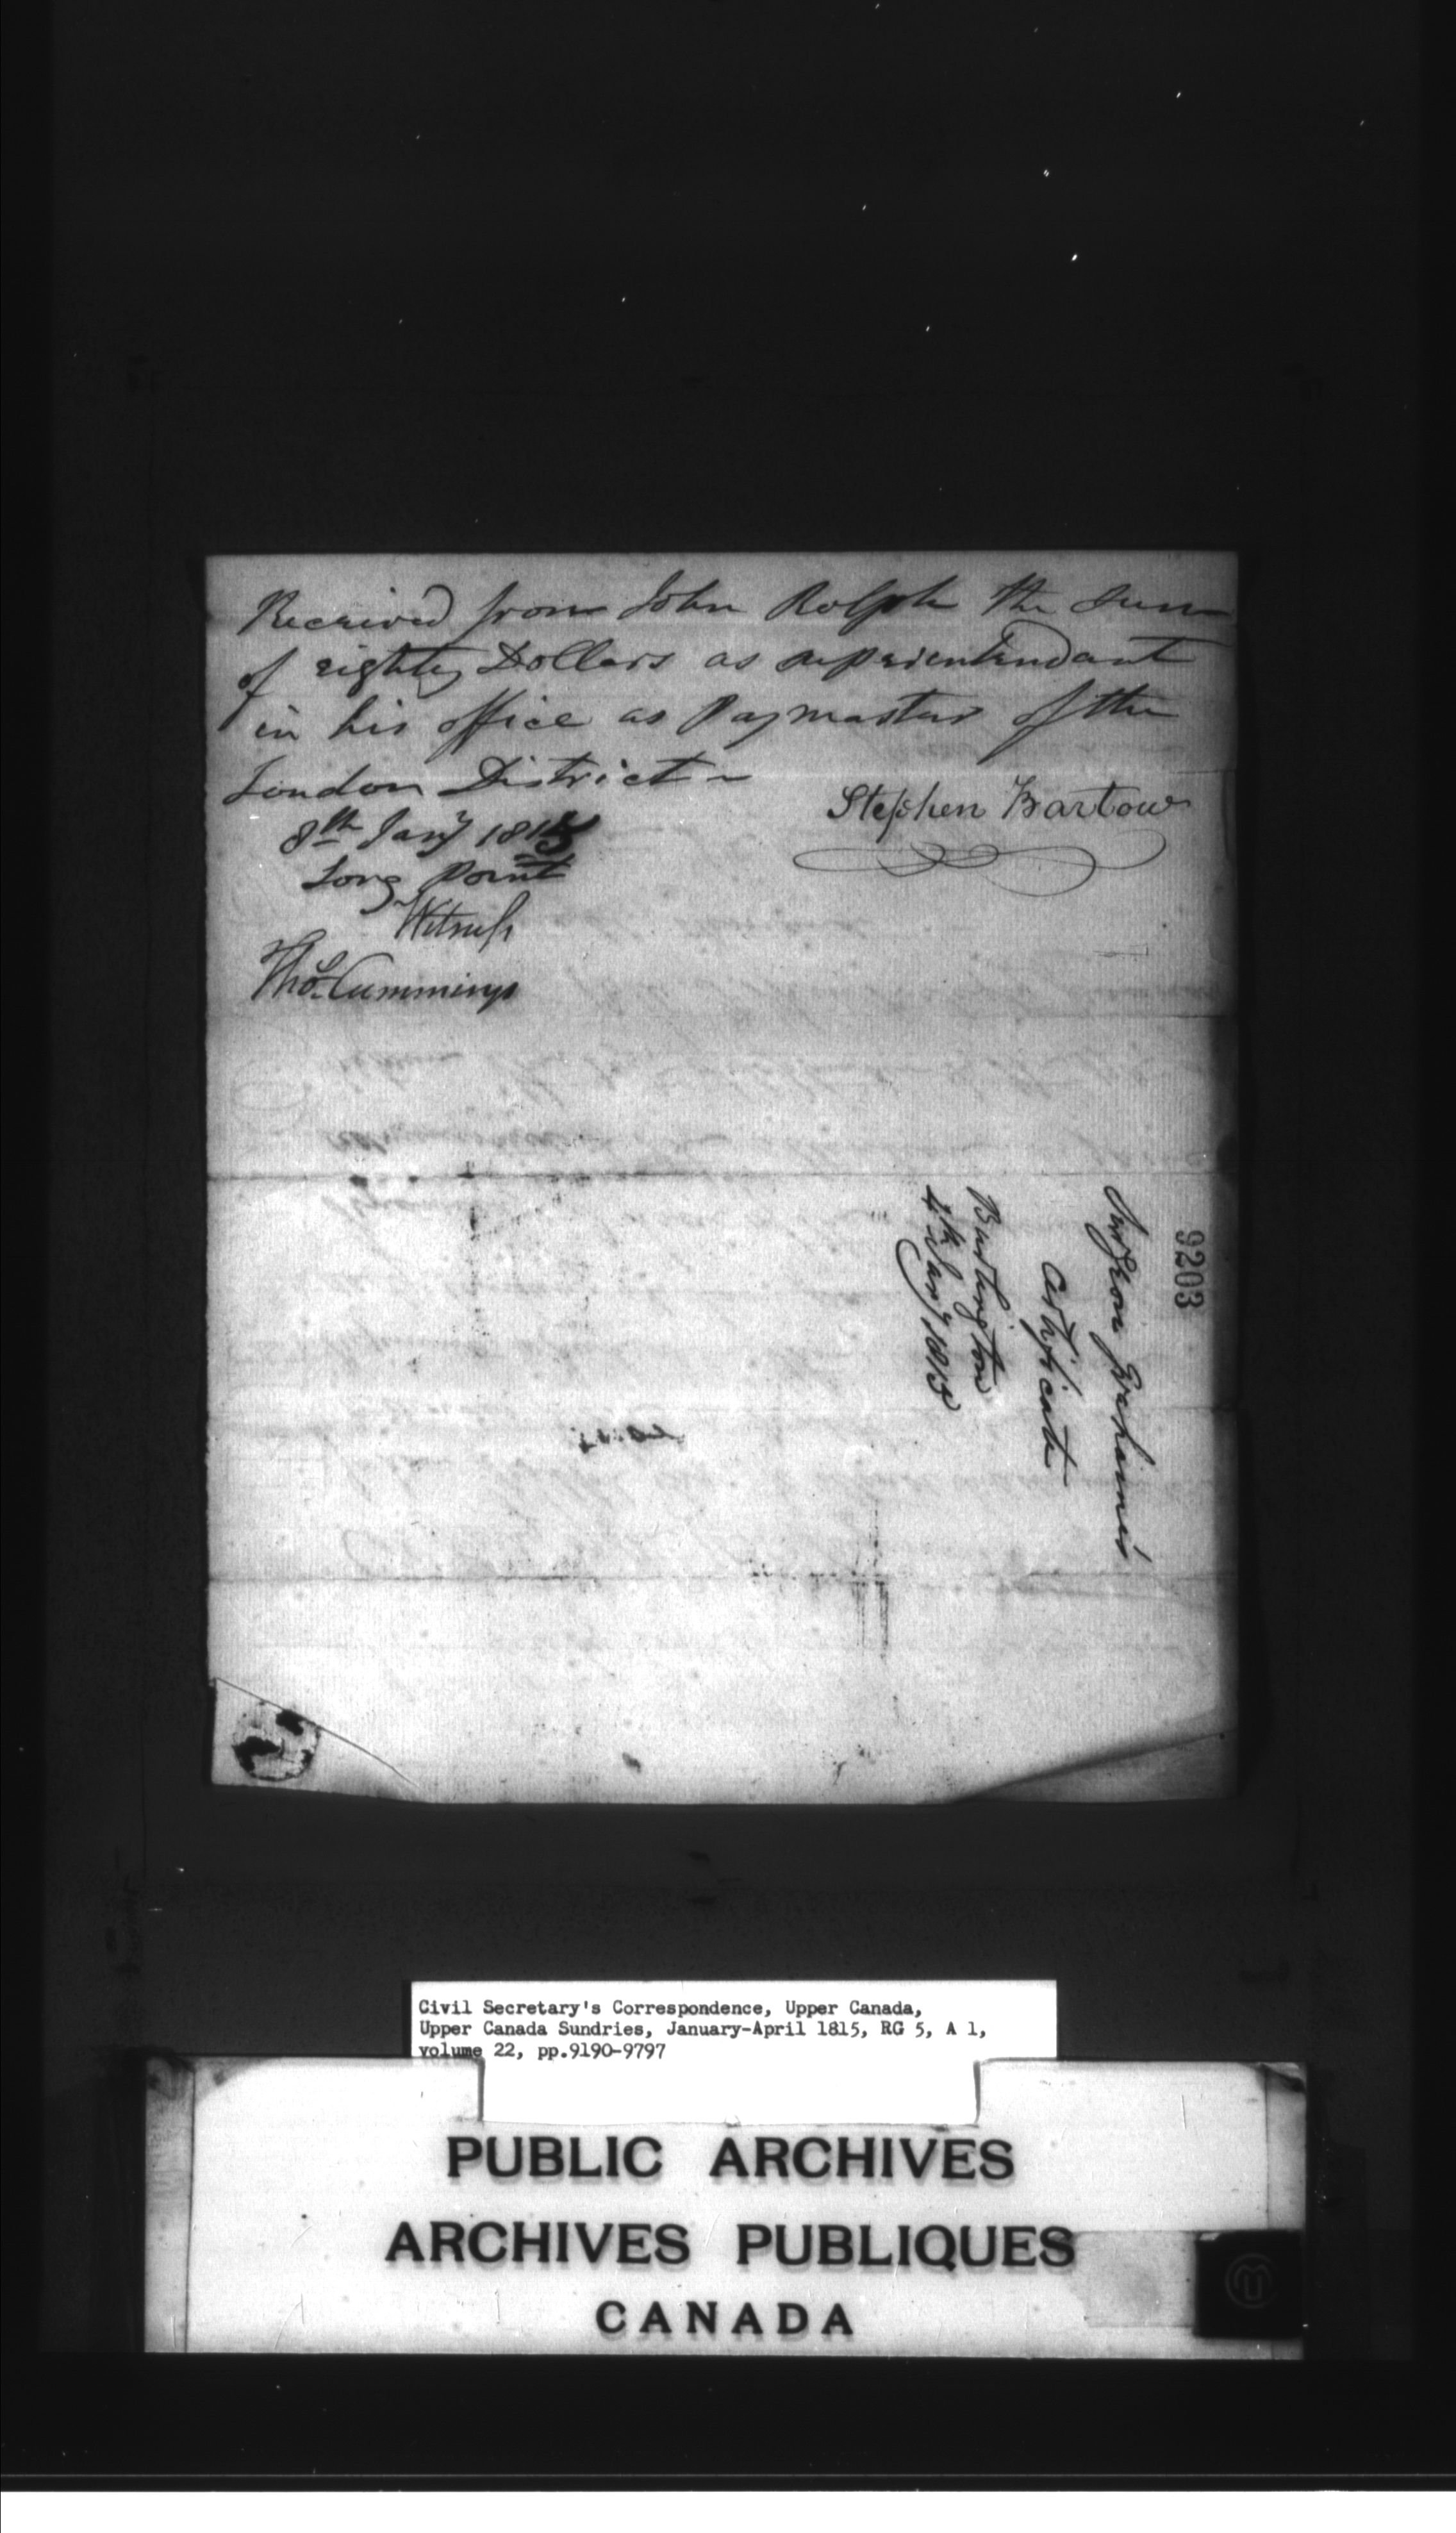 Received from John Rolph the sum
of eighty Dollars as superientendant
in his office as Paymaster of the
London District ~
Stephen Bartow
8th Jany 1815
Long Point
Witness
Thos. Cummings
9203
Surgeon Grahames
Certificate
Burlington
4th Jany 1815
Civil Secretary's Correspondence, Upper Canada,
Upper Canada Sundries, January-April 1815, RG 5, A 1,
volume 22, pp.9190-9797
PUBLIC ARCHIVES
ARCHIVES PUBLIQUES
CANADA